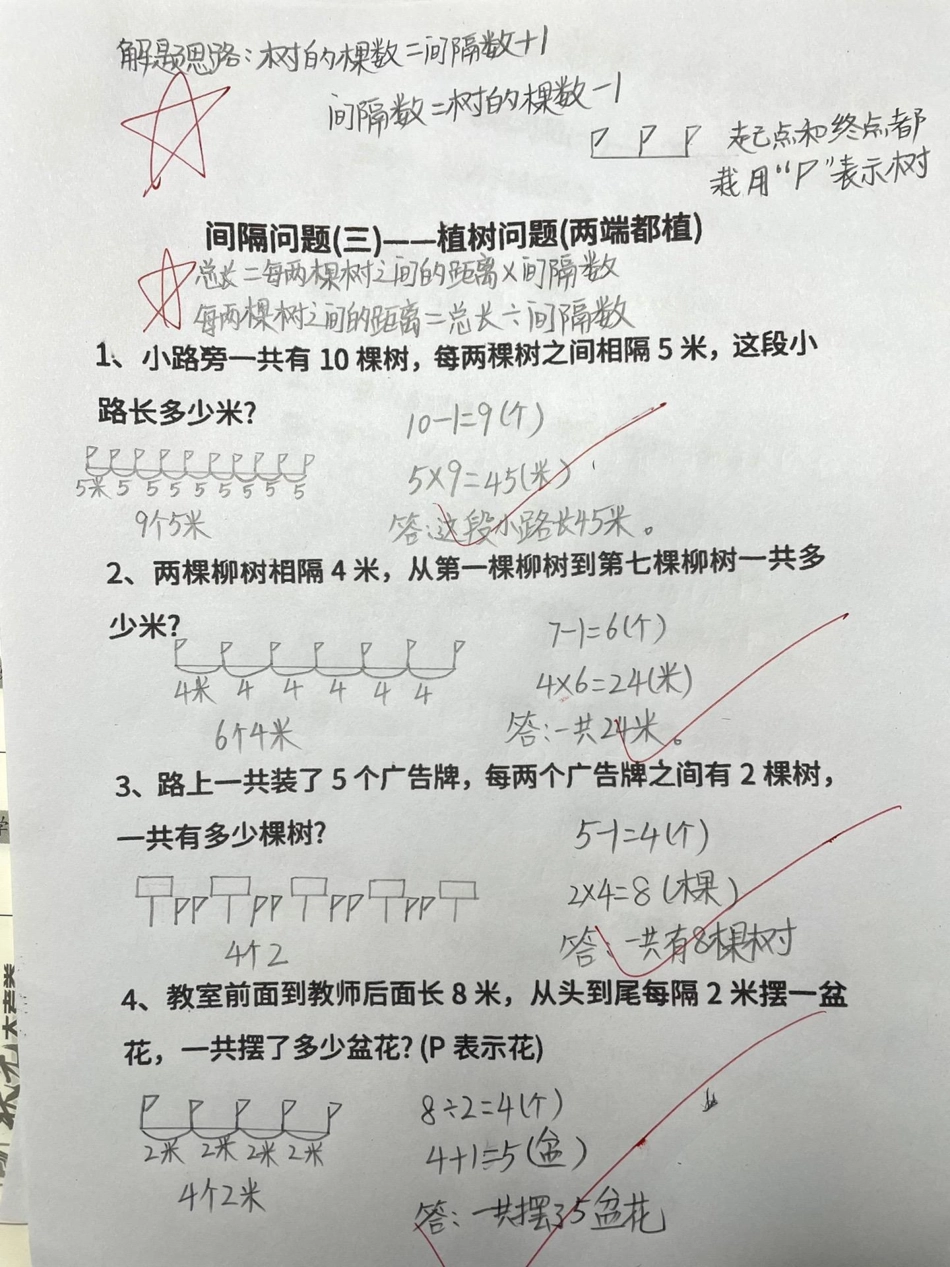 解题思路:树的棵数=间隔数+1
间隔数=树的棵数-1
P P P 起点和终点都
栽用“P”表示树
间隔问题(三)——植树问题(两端都植)
总长=每两棵树之间的距离×间隔数
每两棵树之间的距离=总长÷间隔数
1、小路旁一共有 10 棵树，每两棵树之间相隔 5 米，这段小
路长多少米?
10-1=9(个)
5×9=45(米)
5米 5 5 5 5 5 5 5 5
9个5米
答:这段小路长45米。
2、两棵柳树相隔 4 米，从第一棵柳树到第七棵柳树一共多
少米?
7-1=6(个)
4×6=24(米)
4米 4 4 4 4 4
6个4米
答:一共24米。
3、路上一共装了 5 个广告牌，每两个广告牌之间有 2 棵树，
一共有多少棵树?
5-1=4(个)
2×4=8(棵)
PP PP PP PP
4个2
答:一共有8棵树
4、教室前面到教师后面长 8 米，从头到尾每隔 2 米摆一盆
花，一共摆了多少盆花? (P 表示花)
P P P P P
8÷2=4(个)
2米 2米 2米 2米
4+1=5(盆)
4个2米
答:一共摆了5盆花